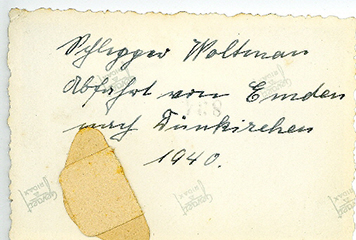 Schlepper Woltman
Abfahrt von Emden
nach Dünkirchen
1940.
Gevaert
Gevaert